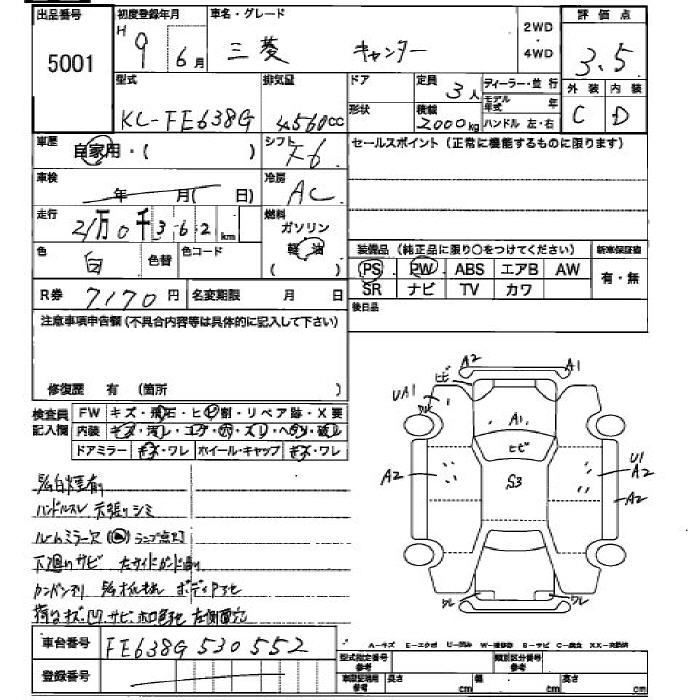 出品番号 初度登録年月 車名・グレード 2WD・4WD 評価点
5001 H 9年 6月 三菱 キャンター 3.5
型式 排気量 ドア 定員 3人 ディーラー・並行 外装 内装
KC-FE638G 4560cc 形状 積載 2000kg モデル年式 年 ハンドル 左・右 C D
車歴 自家用・( ) シフト F6 セールスポイント(正常に機能するものに限ります)
車検 年 月( 日) 冷房 AC
走行 21万0千362km 燃料 ガソリン 軽油 ( )
色 白 色替 色コード 装備品(純正品に限り○をつけてください) 新車保証書
PS PW ABS エアB AW 有・無
R券 7170円 名変期限 月 日 SR ナビ TV カワ
注意事項申告欄(不具合内容等は具体的に記入して下さい) 後日品
修復歴 有 (箇所 )
検査員記入欄 FW キズ・飛石・ヒビ割・リペア跡・X要
内装 キズ・汚レ・コゲ・穴・スレ・ヘタリ・破レ
ドアミラー キズ・ワレ ホイール・キャップ キズ・ワレ
A2 A1
ヒビ
UA1
A1
ヒビ
A2 S3 U1 A2
A2
ハンドルスレ 天張りシミ
ルームミラー欠
下廻りサビ
ワレ ワレ
車台番号 FE638G 530552
A-キズ E-エクボ U-凹み W-補修跡 S-サビ C-腐食 XX-交換済
登録番号 型式指定番号 参考 類別区分番号 参考
車庫証明用 参考 長さ cm 幅 cm 高さ cm